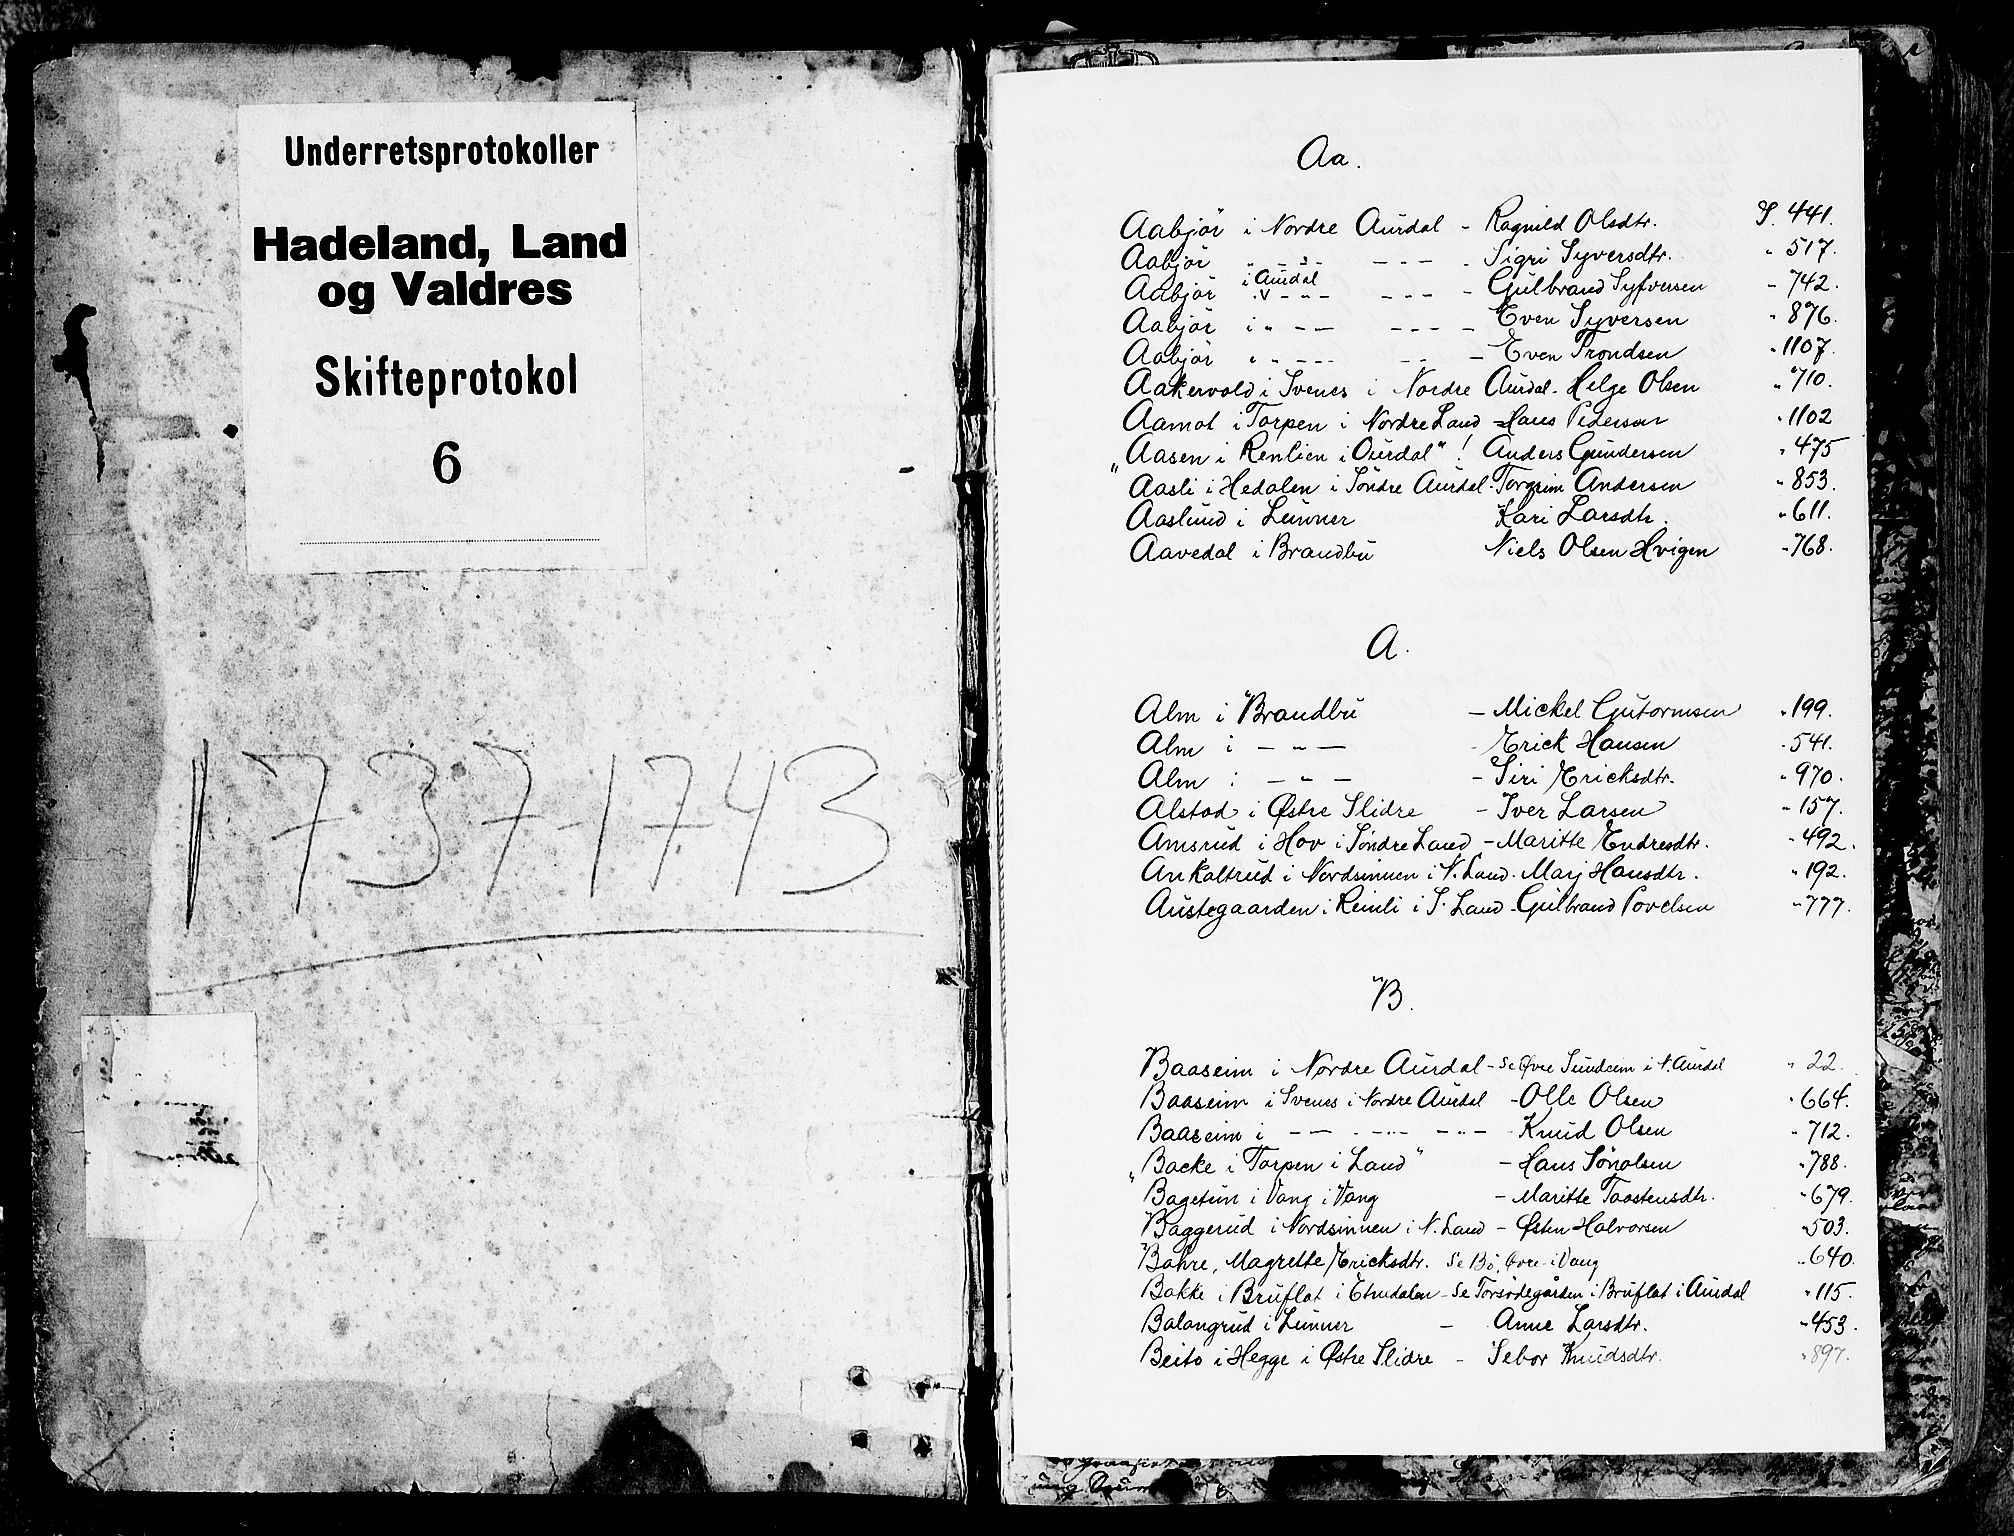 Underretsprotokoller
Hadeland, Land
og Valdres
Skifteprotokol
6
1737-1743
Aa.
Aabjör i Nordre Aurdal - Ragnild Olsdtr. S. 441.
Aabjör " - " - - - - - Sigri Syversdtr. " 517.
Aabjör i Aurdal v - " - - - - - Gulbrand Syfversen - 742.
Aabjör i " - - - - - - Even Syversen " 876.
Aabjör " " - - - - - - Even Trondsen " 1107.
Aakervold i Svenes i Nordre Aurdal - Helge Olsen " 710.
Aamot i Torpen i Nordre Land - Hans Pedersen " 1102
"Aasen i Renlien i Aurdal" ! Anders Gundersen " 475
Aasli i Hedalen i Søndre Aurdal - Torgrim Andersen " 853.
Aaslund i Lunner Kari Larsdtr. " 611.
Aavedal i Brandbu Niels Olsen Hvigen - 768.
A.
Alm i Brandbu - Mickel Gutormsen " 199.
Alm i - " - - Erick Hansen " 541.
Alm i - " - - Siri Ericksdtr. " 970.
Alstad i Østre Slidre - Iver Larsen - 157.
Amsrud i Hov i Søndre Land - Maritte Endresdtr. " 492.
Ankaltrud i Nordsinnen i N. Land - Marj Hansdtr. " 192.
Austegaarden i Reinli i S. Land - Gulbrand Povelsen " 777.
B.
Baaseim i Nordre Aurdal - Se Øvre Sundeim i N. Aurdal " 22.
Baaseim i Svenes i Nordre Aurdal - Olle Olsen " 664.
Baaseim i - - - " - - - " - - Knud Olsen - 712.
"Backe i Torpen i Land" - Hans Jönolsen " 788.
Bagetun i Vang i Vang - Maritte Taastensdtr. " 679.
Baggerud i Nordsinnen i N. Land - Østen Halvorsen " 503.
Bahre, Magrette Ericksdtr. Se Bö, Øvre i Vang " 640.
Bakke i Bruflat i Etnedalen - Se Torsödegården i Bruflat i Aurdal " 115.
Balangrud i Lunner - Anne Larsdtr. " 453.
Beito i Hegge i Østre Slidre - Sebor Knudsdtr. " 897.